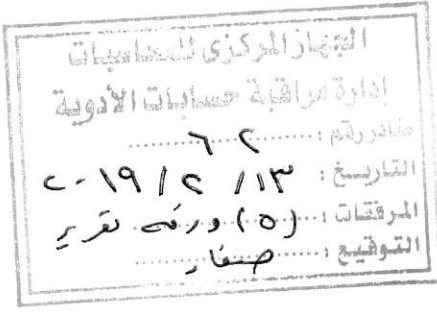 الجهاز المركزى للمحاسبات
إدارة مراقبة حسابات الأدوية
صادر رقم : ٦٢
التاريخ : ١٣ / ٢ / ٢٠١٩
المرفقات : (٥) ورقه تقرير
التوقيع : صفاء